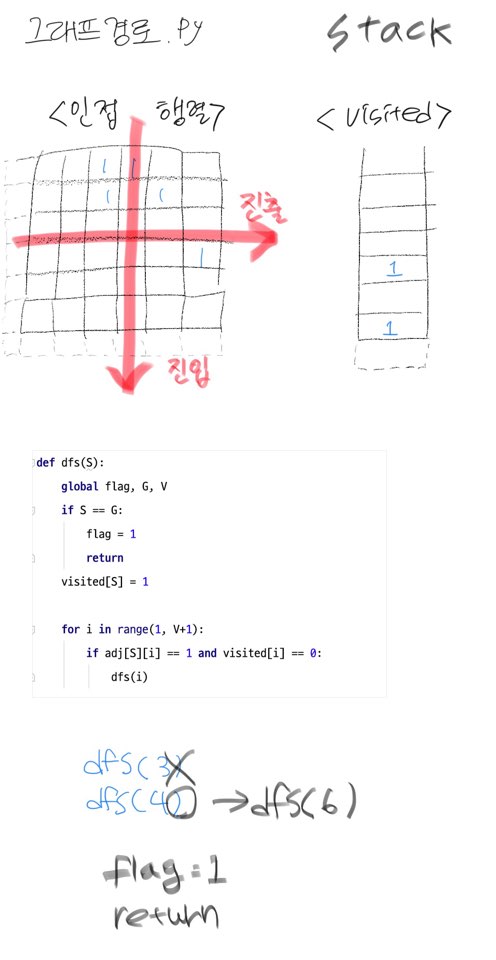 그래프경로.py
Stack
<인접 행렬>
<visited>
1 1
1 1
진출
1
1
1
진입
def dfs(S):
global flag, G, V
if S == G:
flag = 1
return
visited[S] = 1
for i in range(1, V+1):
if adj[S][i] == 1 and visited[i] == 0:
dfs(i)
dfs(3)
dfs(4) →dfs(6)
flag=1
return